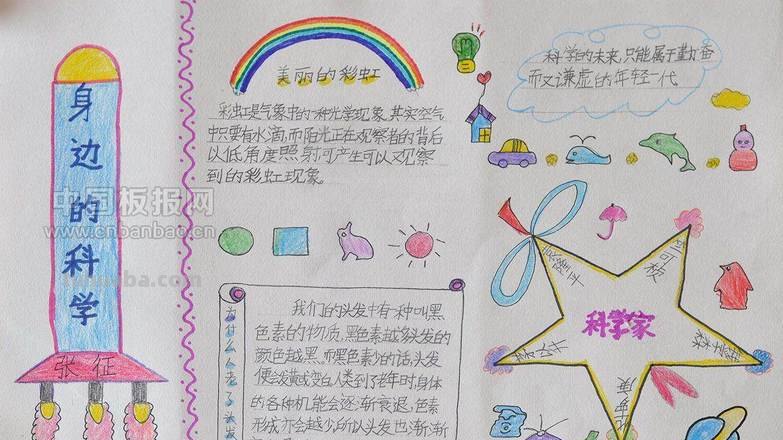 身边的科学
张征
中国板报网
www.cnbanbao.cn
美丽的彩虹
彩虹是气象中的一种光学现象,其实空气
中只要有水滴,而阳光正在观察者的背后
以低角度照射可产生可以观察
到的彩虹现象。
科学的未来,只能属于勤奋
而又谦虚的年轻一代
为什么人老了头发
我们的头发中有一种叫黑
色素的物质,黑色素越多头发的
颜色越黑,而黑色素少的话,头发
便会发黄或变白人类到了老年时,身体
的各种机能会逐渐衰退,色素
形成亦会越少,所以头发也渐渐
科学家